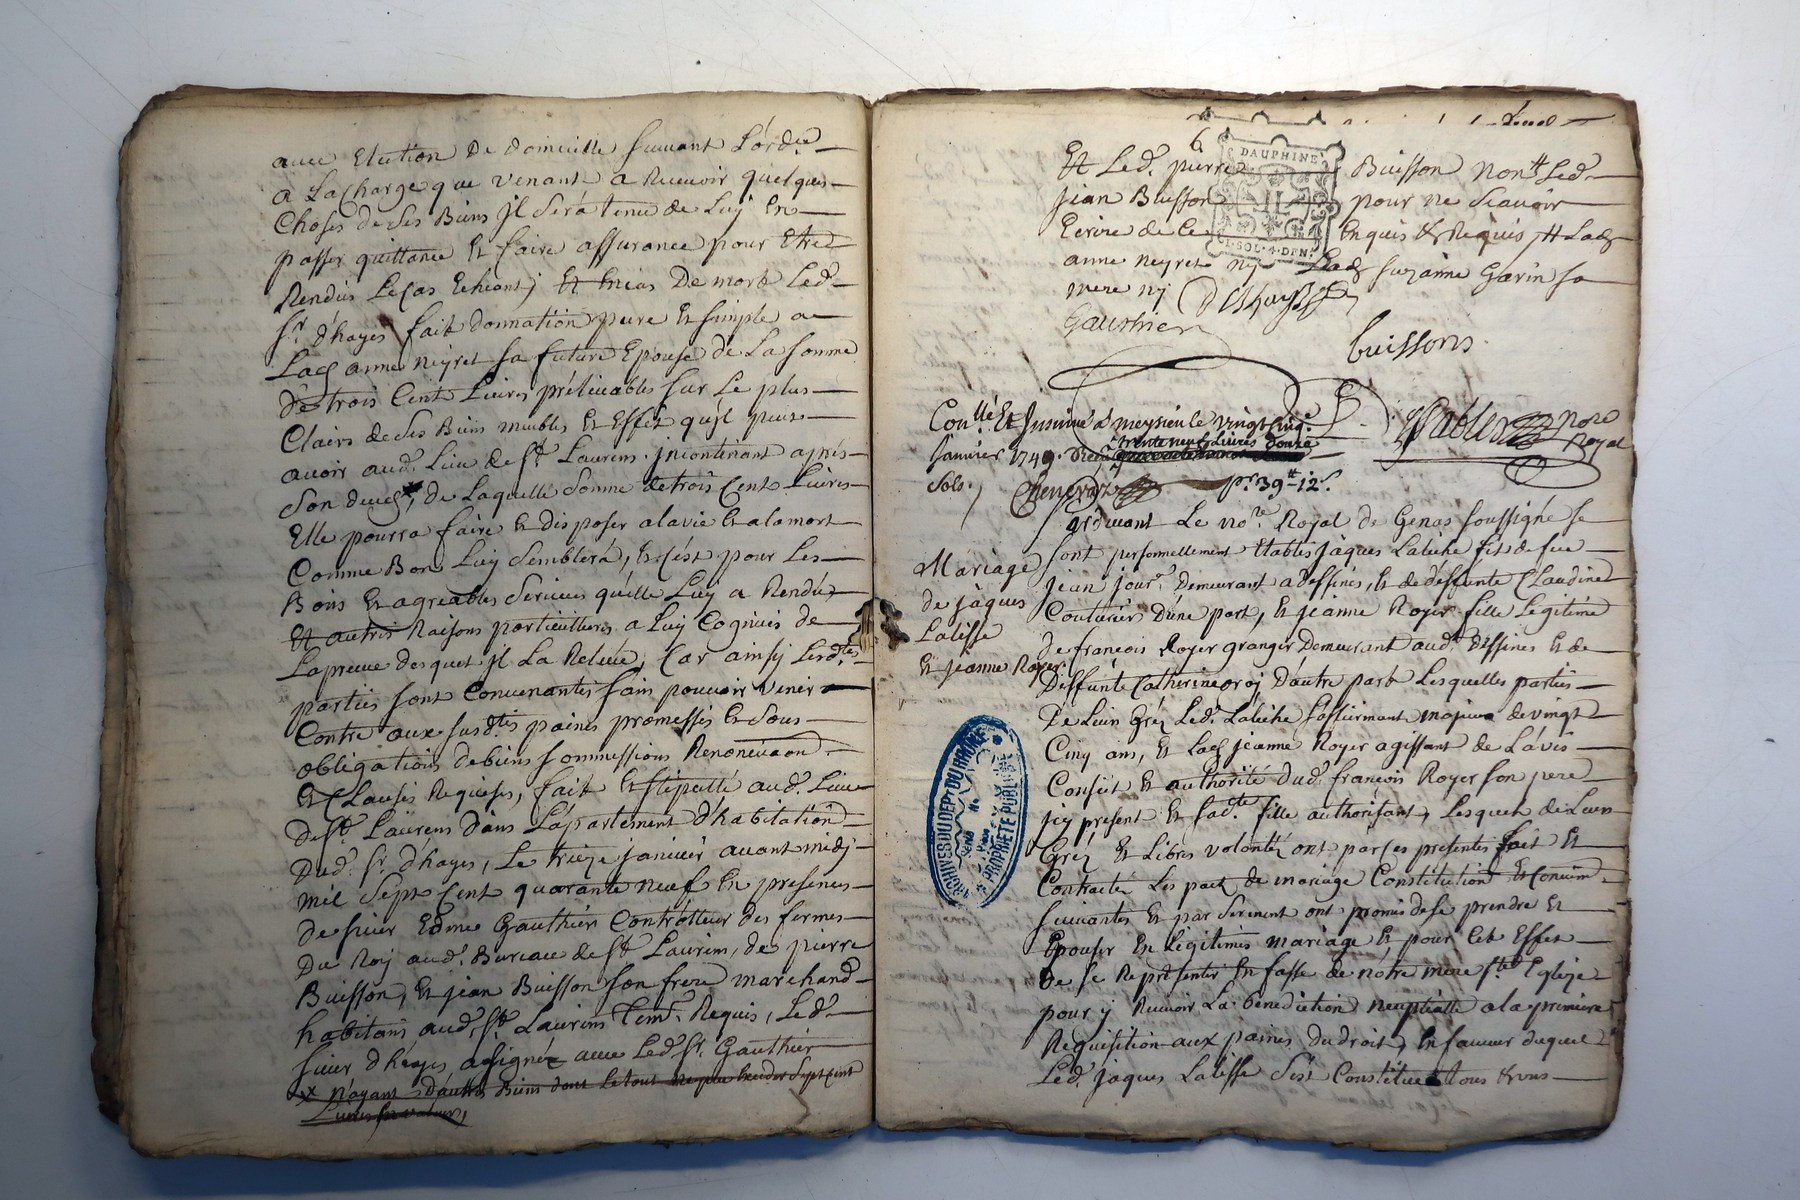 avec Election De domicille suivant L'ordce
a La Charge que venant a Recevoir quelques
Choses de Ses Biens jl Sera tenu de Luy En
passer quittance Et faire assurance pour Etre
Rendus Le Cas Echeant; Et En cas De mort Led.
Sr. d'hayes fait donnation pure Et simple a
Lad. anne Neyret sa future Epouse de La somme
De trois Cent Livres prélevables sur Le plus
Clairs de Ses Biens meubles Et Effet qu'jl peut
avoir aud. Lieu de St. Laurens jncontinant après
Son deces, de Laquelle somme de trois Cent Livres
Elle pourra faire Et disposer a la vie Et a la mort
Comme Bon Luy Semblera, Et C'est pour Les
Bons Et agreables Services qu'elle Luy a Rendus
Et autres Raisons particullieres a Luy Cognües de
La preuve desquel jl La Releve, Car ainsy Lesd.tes
parties sont Convenantes sans pouvoir venir
Contre aux susd.tes paines promesses Et Sous
obligations de biens sommissions Renonciaon
Et Clauses Requises, fait Et stipullé aud. Lieu
de St. Laurens dans L'apartement d'habitation
Dud. Sr. d'hayes, Le treize janvier avant midj
mil Sept Cent quarante neuf En presences
de sieur Edme Gauthier Controlleur des fermes
Du Roy aud. Bureau de St. Laurens, de pierre
Buisson, Et jean Buisson son frere marchand
habitans aud. St. Laurens Tem. Requis, Led.
sieur d'hayes a signé avec Led. Sr. Gauthier
x N'ayant D'autres Biens dont le tout sept Cent
Livres
6
DAUPHINE
I.SOL.4.DEN.
Et Led. pierre Buisson Non Led.
jean Buisson pour ne Scavoir
Ecrire de Ce Enquis & Requis Lad.
anne neyret ny Lad. suzanne Garin sa
mere nj
Gauthier
buissons.
Conllé Et Jnsinué a meysieu le vingt cinq
janvier 1749. trente neuf Livres douze
Sols. pr. 39tt-12s.
nore Royal
pardevant Le nore. Royal de Genas soussigné se
sont personnellement Etablis jaques Lateche fils de feu
jean jour. Demeurant a Dessines, Et de deffunte Claudine
Couturier D'une part, Et jeanne Royer fille Legitime
de francois Royer granger Demeurant aud. Dessines Et de
Deffunte Catherine D'autre part Lesquelles parties
De Leur Gréz Led. Lateche s'affirmant majeur de vingt
Cinq ans, Et Lad. jeanne Royer agissant de L'avis
Conseil Et authorité dud. francois Royer son pere
jcy present Et sad.te fille authorisant, Lesquels de Leurs
Gréz Et Libres volontéz ont par Ces presentes fait Et
Contracté Les pact de mariage Constitution Et
suivantes Et par Serment ont promis de se prendre Et
Epouser En Legitimes mariage Et pour Cet Effet
De se Representer En fasse de nôtre mere Ste. Eglize
pour y Recevoir La benediction neuptialle a la premiere
Requisition aux paines du droit, En faveur duquel
Led. jaques Latesse s'est Constitué tous &uns
Mariage
de jaques
Latesse
Et jeanne Royer
ARCHIVES DU DEPT DU RHONE
PROPRIETE PUBLIQUE